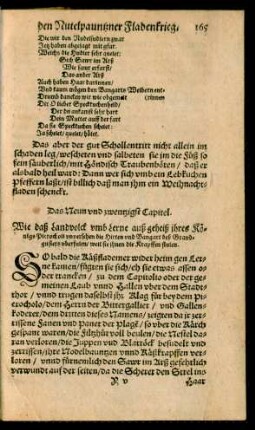 den Nutelpaunßner Fladenkrieg.
165
Die wir den Nudelsudlern zwar
Jetz haben abgelegt mit gfar.
Welche die Hudler sehr quelet:
Gsch Sawr im Arß
Wie saur erfarst,
Das ander Arß
Auch haben Haar darinnen,
Vnd kaum mögen den Bangarts Weibern ent-
rinnen
Drumb dancken wir wie obgemelt
Dir O lieber Speckkuchenheld,
Der du ankamst sehr hart
Dein Mutter auff der fart
Da sie Speckkuchen scheiet:
Ja scheiet, speiet, höiet.
Das aber der gut Schollentritt nicht allein im
schaden leg, wescheten vnd salbeten sie jm die Füß so
fein säuberlich, mit Höndisch Traubenhäten, daß er
alsbald heil ward: Dann wer sich vmb ein Lebkuchen
Pfeffern laßt, ist billich daß man jhm ein Weihnachts
fladen schenckt.
Das Neun vnd zwentzigst Capitel.
Wie daß Landvolck vmb Lerne auß geheiß ihres Kö-
nigs Picrocholi vnversehen die Hirten vnd Bangart des Grand-
gusiers vberfielen, weil sie jhnen die Krapffen stalen.
SO bald die Käßfladener wider heim gen Ler-
ne kamen, fügten sie sich, eh sie etwas assen o-
der trancken, zu dem Capitolio oder der ge-
meinen Laub vnnd Hallen vber dem Stadt-
thor, vnnd trugen daselbst jhr Klag für bey dem Pi-
crocholo, dem Herrn der Bittergallier, vnd Gallen-
koderer, dem dritten dieses Namens, zeigten da je zer-
rissene Fanen vnd Paner der Plagß, so vber die Kärch
gespannt waren, die Filtzhüt voll beulen, die Nestel dar-
van verloren, die Juppen vnd Blatröck besudelt vnd
zerrissen, ihre Nodelbauntzen vnnd Käßkrapffen ver-
loren, vnnd fürnemlich den Sawr im Arß gefehrlich
verwundt auf der seiten, da die Scherer den Sitel ins
N v
Haar